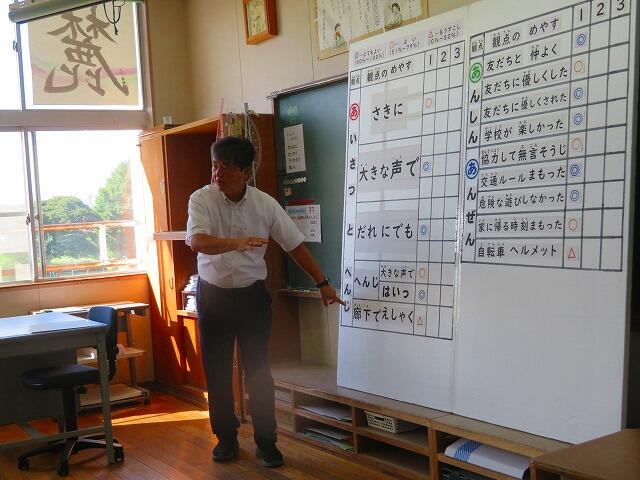 ◎…とてもよい (80%~100%)
○…よい (51%~79%)
△…もうすこし (0%~50%)
観点 観点のめやす 1 2 3
あいさつとへんじ
さきに ○
大きな声で ◎
だれにでも ◎
へんじ 大きな声で ○
はいっ ◎
廊下でえしゃく △
観点 観点のめやす 1 2 3
あんしん あんぜん
友だちと 仲よく ◎
友だちに優しくした ○
友だちに優しくされた ◎
学校が 楽しかった ◎
協力して無言そうじ ○
交通ルールまもった ◎
危険な遊びしなかった ◎
家に帰る時刻まもった ○
自転車 ヘルメット △
11